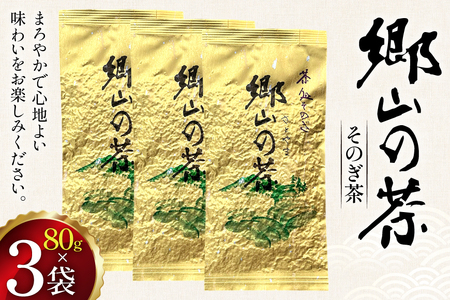 まろやかで心地よい
味わいをお楽しみください。
郷山の茶
そのぎ茶
郷山の茶
郷山の茶
郷山の茶
80g×
3袋